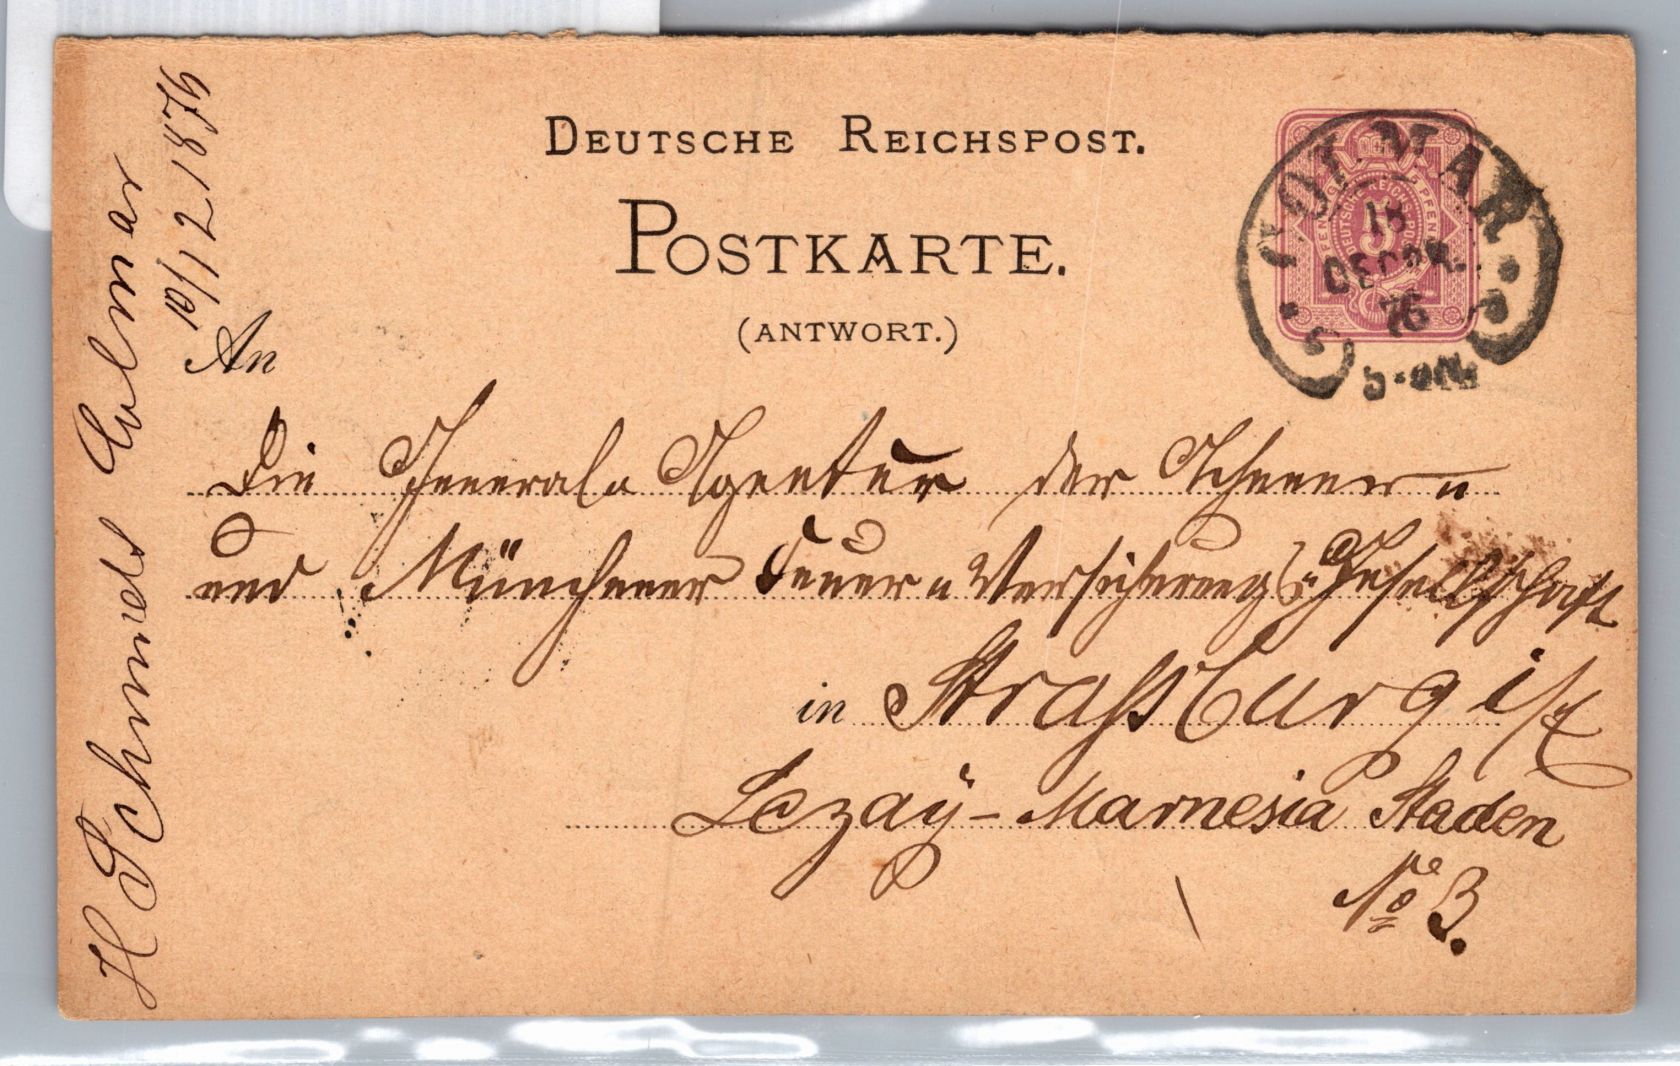 DEUTSCHE REICHSPOST.
POSTKARTE.
(ANTWORT.)
An
Die General-Agentur der Achener-
und Münchener Feuer-Versicherungs-Gesellschaft
in Strassburg i/E
Lezaÿ-Marnesia Staden
No 3.
COLMAR
DECBR.
76
DEUTSCHE REICHSPOST
5
H Schmidt Colmar
10/12 1876